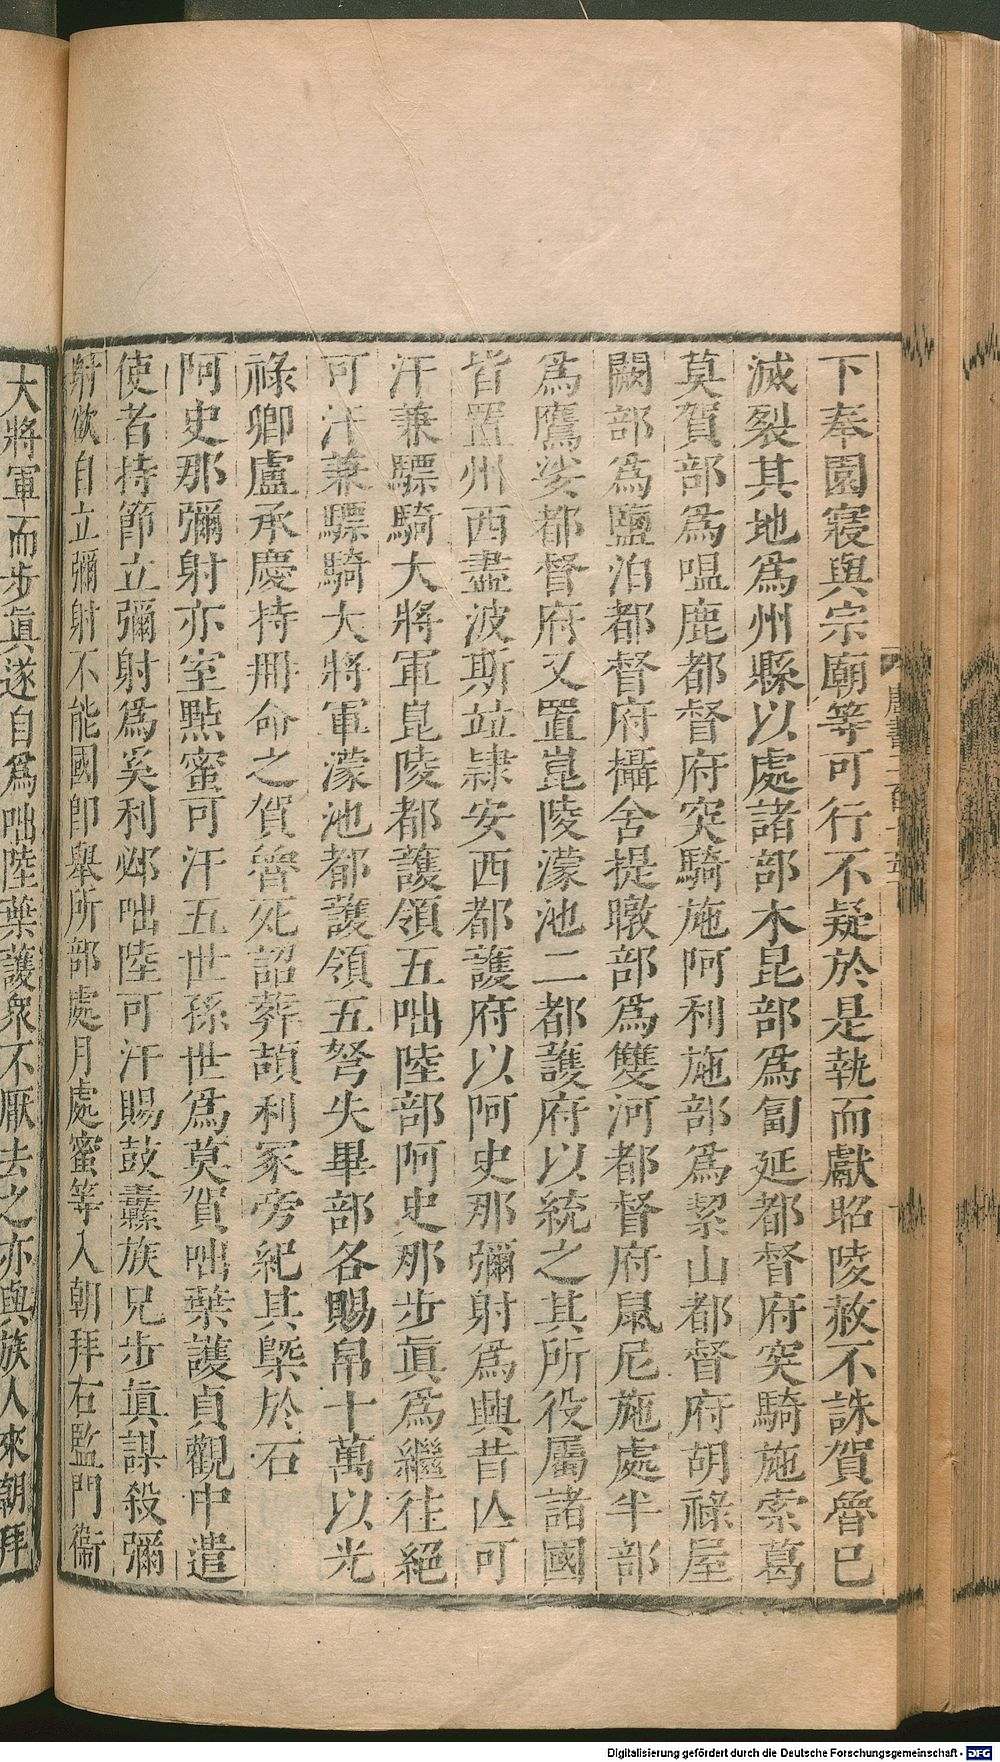 下奉園寢與宗廟等可行不疑於是執而獻昭陵赦不誅賀魯已
滅裂其地爲州縣以處諸部木昆部爲匐延都督府突騎施索葛
莫賀部爲嗢鹿都督府突騎施阿利施部爲絜山都督府胡祿屋
闕部爲鹽泊都督府攝舍提暾部爲雙河都督府鼠尼施處半部
爲鷹娑都督府又置崑陵濛池二都護府以統之其所役屬諸國
皆置州西盡波斯竝隷安西都護府以阿史那彌射爲興昔亾可
汗兼驃騎大將軍崑陵都護領五咄陸部阿史那步眞爲繼往絕
可汗兼驃騎大將軍濛池都護領五弩失畢部各賜帛十萬以光
祿卿盧承慶持冊命之賀魯死詔葬頡利冢旁紀其槩於石
阿史那彌射亦室點蜜可汗五世孫世爲莫賀咄葉護貞觀中遣
使者持節立彌射爲奚利邲咄陸可汗賜鼓纛族兄步眞謀殺彌
射欲自立彌射不能國卽舉所部處月處蜜等入朝拜右監門衞
大將軍而步眞遂自爲咄陸葉護衆不厭去之亦與族人來朝拜
Digitalisierung gefördert durch die Deutsche Forschungsgemeinschaft - DFG